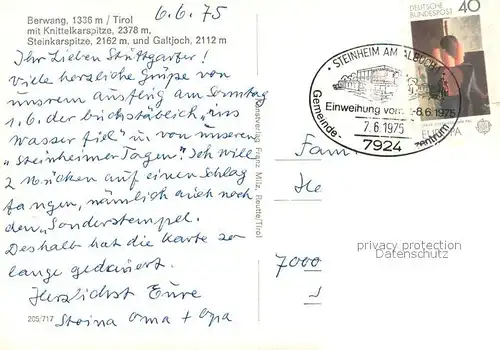 Berwang, 1336 m / Tirol
mit Knittelkarspitze, 2378 m,
Steinkarspitze, 2162 m, und Galtjoch, 2112 m
6.6.75
Ihr Lieben Stuttgarter!
Viele herzliche Grüße von
unserem Ausflug am Sonntag
1.6. der buchstäblich „ins
Wasser fiel" u. von unseren
„Steinheimer Tagen". Ich will
2 Mücken auf einen Schlag
fangen, nämlich auch noch
den „Sonderstempel.
Deshalb hat die Karte so
lange gedauert.
Herzlichst Eure
Steina Oma + Opa
205/717
Franz Milz, Reutte/Tirol
DEUTSCHE
BUNDESPOST
40
EUROPA
STEINHEIM AM ALBUCH
Einweihung vom -8.6.1975
7.6.1975
Gemeinde-
7924
Fam
He
7000
privacy protection
Datenschutz